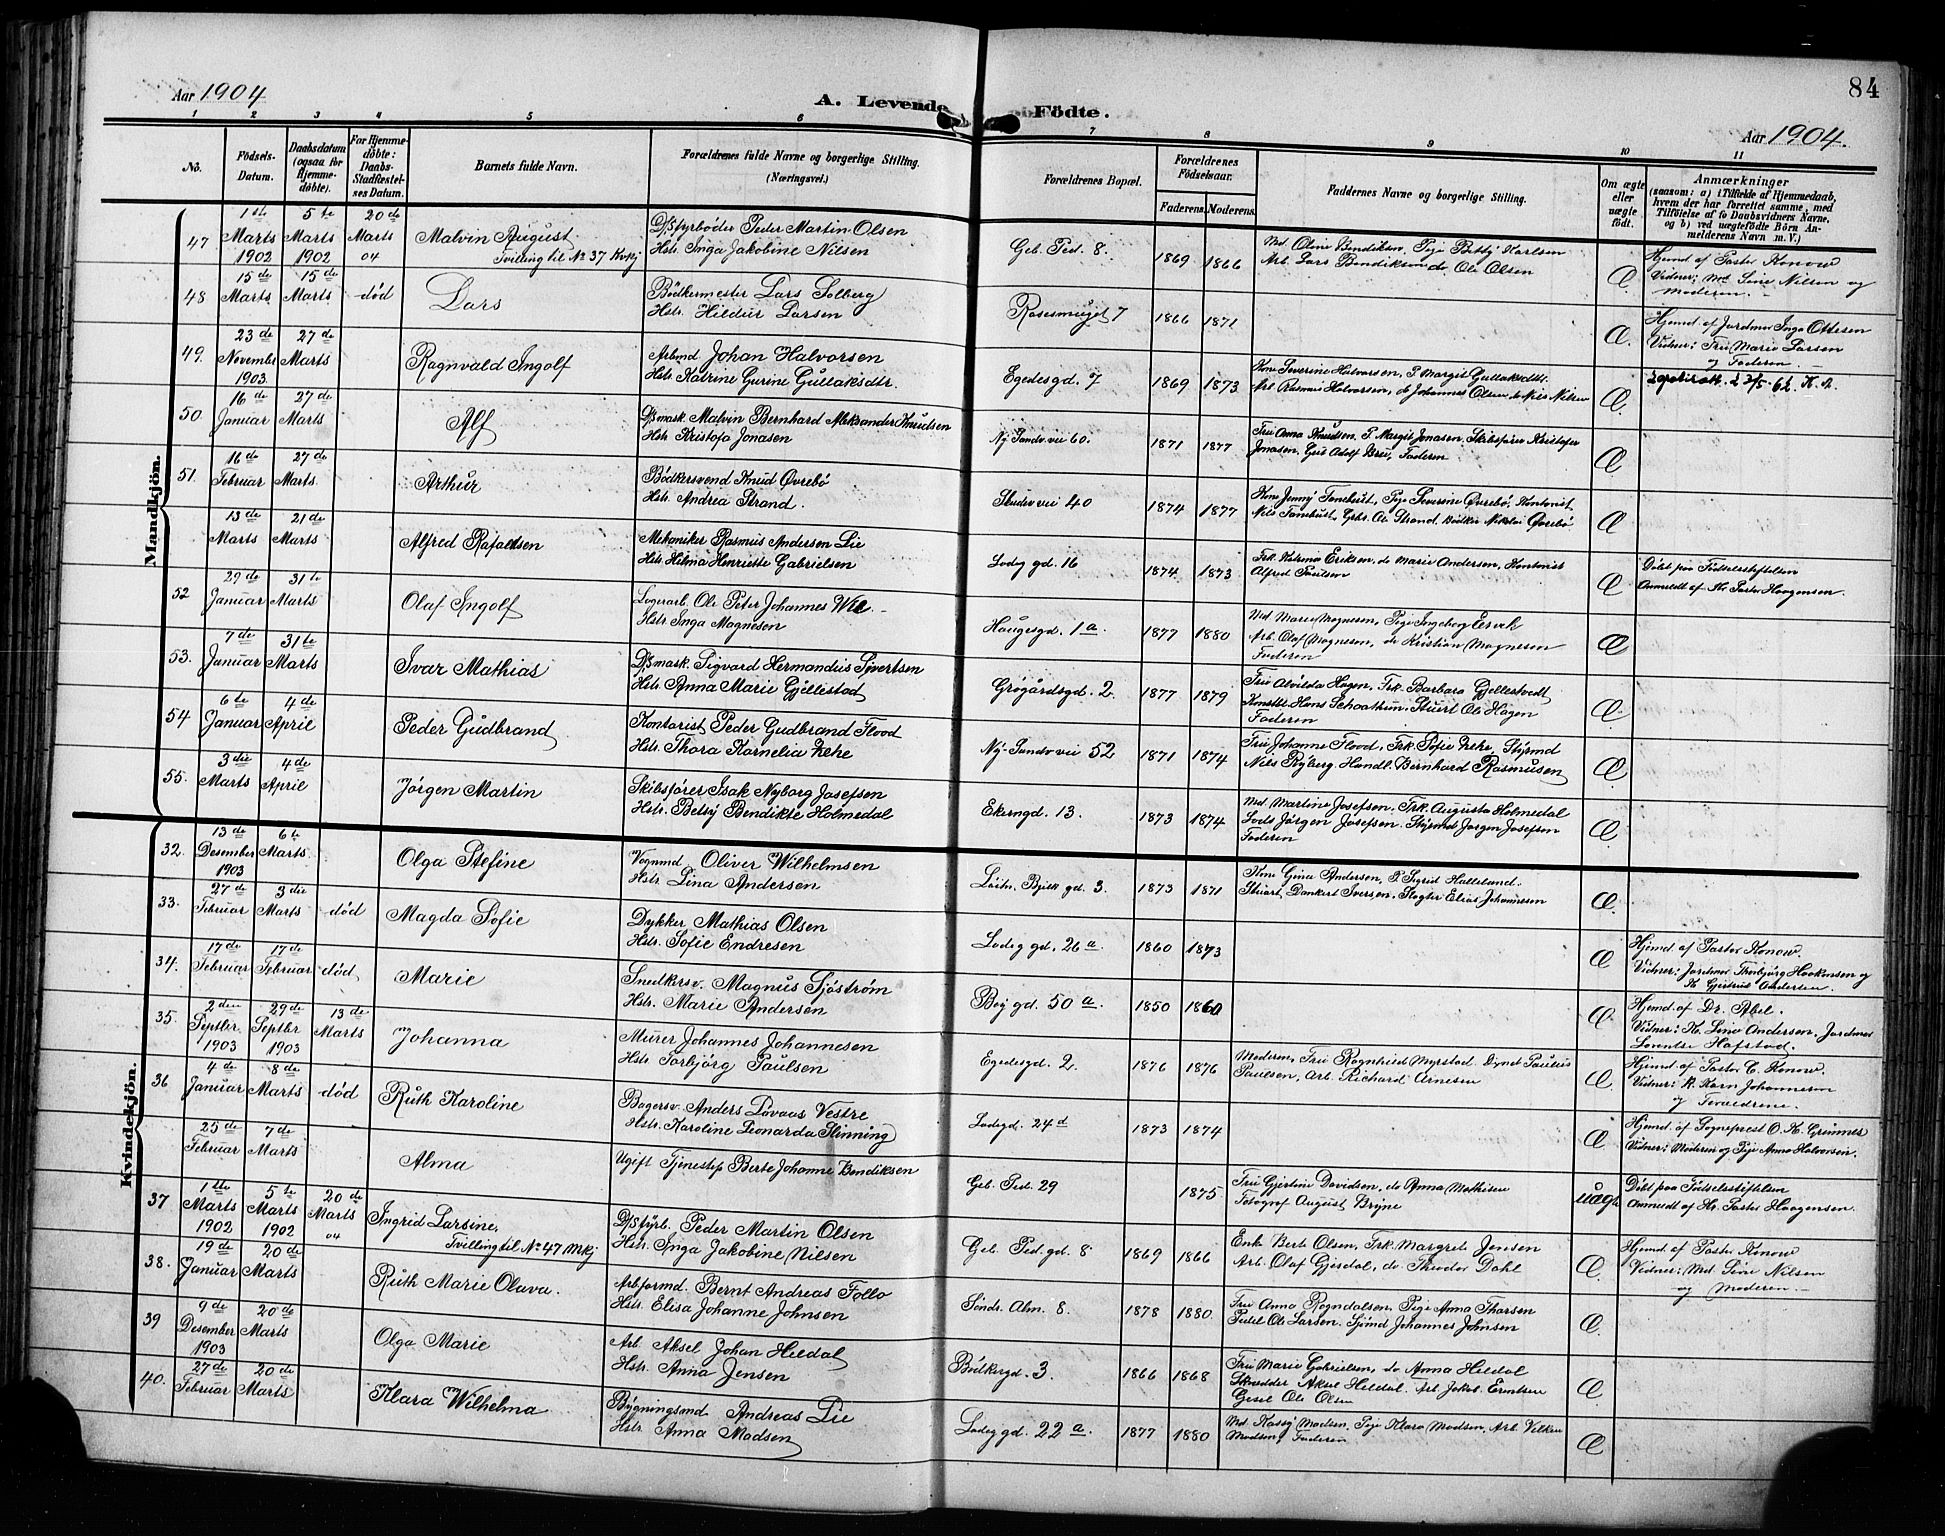 Aar 1904
A. Levende Födte.
84
Aar 1904.
1 2 3 4 5 6 7 8 9 10 11
No.
Födsels-Datum.
Daabsdatum (ogsaa for Hjemmedöbte).
For Hjemmedöbte: Daabs-Stadfæstelses Datum.
Barnets fulde Navn.
Forældrenes fulde Navne og borgerlige Stilling. (Næringsvei.)
Forældrenes Bopæl.
Forældrenes Födselsaar.
Faderens. Moderens.
Faddernes Navne og borgerlige Stilling.
Om ægte eller uægte födt.
Anmærkninger
(saasom: a) i Tilfælde af Hjemmedaab, hvem der har forrettet samme, med Tilföielse af to Daabsvidners Navne, og b) ved uægtefödte Börn Anmelderens Navn m. V.)
Mandkjön.
47 1ste Marts 1902 5te Marts 1902 20de Marts 04 Malvin August Tvilling til No 37 Kvkj
D/Sfyrbøder Peder Martin Olsen
Hstr. Inga Jakobine Nilsen
Geb. Ped. 8. 1869 1866
Md. Oline Bendiksen, Pige Betsy Karlsen
Arb. Lars Bendiksen, do Ole Olsen
Æ
Hjemd af Pastor Konow
Vidner: Md. Sine Nilsen og
Moderen.
48 15de Marts 15de Marts død Lars
Bødkermester Lars Solberg
Hstr. Hildur Larsen
Rosesmuget 7 1866 1871
Æ.
Hjemd af Jordmor Inga Ottesen
Vidner: Fru Marie Larsen
og Faderen.
49. 23de November 1903. 27de Marts Ragnvald Ingolf
Arbmd Johan Halvorsen
Hstr. Katrine Gurine Gullaksdtr.
Egedesgd. 7 1869 1873
Kone Severine Halvorsen, P. Margit Gullaksdtr.
Arb. Rasmus Halvorsen, do Johannes Olsen, do Nils Nilsen
Æ.
50 16de Januar 27de Marts Alf
D/Smask. Malvin Bernhard Aleksander Knudsen
Hstr. Kristofa Jonasen
Ny Sandvvei 60. 1871 1877
Fru Anna Knudsen, P. Margit Jonasen, Skibsfører Kristofer
Jonasen, Adolf Faderen
Æ
51. 16de Februar 27de Marts. Arthur
Bødkersvend Knud Øvrebø
Hstr. Andrea Strand.
40 1874 1877
Kone Jenny Tonebust, Pige Severine Øvrebø, Kontorist
Nils Tonebust, Ole Strand, Bødker Nikolai Øvrebø.
Æ
13de Marts 21de Marts Alfred Rafaelsen
Mekaniker Rasmus Andersen Lie
Hstr. Helma Henriette Gabrielsen
Lodeg gd. 16 1874. 1873
Frk. Katrina Eriksen, do Marie Andersen, Kontorist
Alfred Paulsen
Æ
Døbt paa Fødselsstiftelsen
Anmeldt af Hr. Pastor Haagensen.
52 29de Januar 31te Marts Olaf Ingolf
Lagerarb. Ole Peter Johannes Wee
Hstr. Inga Magnesen
Haugesgd. 1a. 1877 1880
Md Marie Magnesen, Pige Ingeborg
Arb. Olaf Magnesen, do Kristian Magnesen
Faderen
Æ
53. 7de Januar 31te Marts Ivar Mathias
D/Smask. Sigvard Hermandus Sivertsen
Hstr. Anna Marie Gjellestad
Grøgårdsgd. 2 1877 1879
Fru Alvilda Hagen, Frk. Barbara Gjellestvedt
Hans Schaathun, Stuert Ole Hagen
Faderen
Æ
54 6te Januar 4de April Peder Gudbrand
Kontorist Peder Gudbrand Flood
Hstr. Thora Kornelia Zehe
Ny-Sandvvei 52 1871 1874
Fru Johanne Flood, Frk. Sofie Zehe, Styrmd
Nils Ryberg, Handl. Bernhard Rasmusen
Æ
55. 3die Marts 4de April Jørgen Martin
Skibsfører Isak Nyborg Josefsen
Hstr. Betsy Bendikte Holmedal
Ekerngd. 13. 1873 1874
Md. Martine Josefsen, Frk. Augusta Holmedal
Lods Jørgen Josefsen, Styrmd Jørgen Josefsen
Faderen
Æ
Kvindekjön.
32. 13de Desember 1903 6te Marts. Olga Stefine
Vognmd Oliver Wilhelmsen
Hstr. Lina Andersen
Løitn. Bjelk gd. 3. 1873 1871
Kone Gina Andersen, P. Sigrid Halleland.
Stuart, Dankert Iversen, Slagter Elias Johannesen
Æ.
33. 27de Februar 3die Marts død Magda Sofie
Dykker Mathias Olsen
Hstr. Sofie Endresen
Lodeg gd. 26a 1860 1873
Æ
Hjemd. af Pastor Konow.
Vidner: Jordmor Thorbjørg Haakonsen og
K. Gjertrud Andersen.
34. 17de Februar 17de Februar død Marie
Snedkersv. Magnus Sjöström
Hstr. Marie Andersen
Bøy gd. 50a. 1850 1860
Æ
Hjemd. af Dr. Abel.
Vidner: K. Line Andersen, Jordmor
Lorentse Hafstad.
35. 2den Septbr. 1903 29de Septbr 1903 13de Marts Johanna
Murer Johannes Johannesen
Hstr Torbjörg Paulsen
Egedesgd. 2. 1876 1876
Moderen, Fru Ragnhild Myrstad. Paulius
Paulsen, Arb. Richard Arnesen
Æ
Hjemd. af Pastor C. Konow.
Vidner: K. Karn Johannesen
og Forældrene.
36 4de Januar 8de Marts død Ruth Karoline
Bagersv. Anders Lovaas Vestre
Hstr. Karoline Leonarda Slinning
Lodegd. 24d 1873 1874
Æ
Hjemd. af Sogneprest O. K. Grimnes
Vidner: Moderen og Pige Anna Halvorsen.
25de Februar 7de Marts Alma
Ugift Tjenestep Berte Johanne Bendiksen
Geb. Ped. 29 1875
Fru Gjertine Davidsen, do Anna Mathisen
Fotograf August Bryne
uægt
Døbt paa Fødselsstiftelsen
Anmeldt af Hr. Pastor Haagensen.
37 1ste Marts 1902 5te Marts 1902 20de Marts 04 Ingrid Larsine, Tvilling til No 47 Mkj
D/Sfyrb. Peder Martin Olsen
Hstr. Inga Jakobine Nilsen
Geb. Ped. gd. 8 1869 1866
Enk. Berte Olsen, Frk. Margrete Jensen
Arb. Olaf Gjesdal, do Theodor Dahl
Æ.
Hjemd. af Pastor Konow
Vidner: Md. Sine Nilsen
og Moderen.
38. 19de Januar 20de Marts Ruth Marie Olava.
Arbformd. Bernt Andreas Follo
Hstr. Elisa Johanne Johnsen
Söndr. Alm. 8. 1878 1880
Fru Anna Rogndalsen, Pige Anna Thorsen
Ole Larsen, Sjömd Johannes Johnsen
Æ.
39 9de Desember 1903 20de Marts Olga Marie
Arb. Aksel Johan Heldal
Hstr. Anna Jensen
Bödkergd. 3. 1866 1868
Fru Marie Gabrielsen, do Anna Heldal
Skrædder Aksel Heldal. Arb. Jakob Erntsen
Ole Olsen
Æ
40. 27de Februar 20de Marts. Klara Wilhelma
Bygningsmd Andreas Lie
Hstr. Anna Madsen
Lodeg gd. 22a. 1877 1880
Md. Madsen, Pige Klara Madsen, Arb.
Madsen, Faderen
Æ